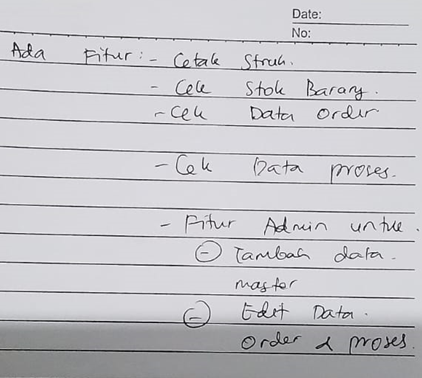 Date:
No:
Ada Fitur: - Cetak Struk.
- Cek Stok Barang.
- Cek Data Order
- Cek Data proses.
- Fitur Admin untuk.
⊖ Tambah data.
master
⊖ Edit Data.
Order & proses.